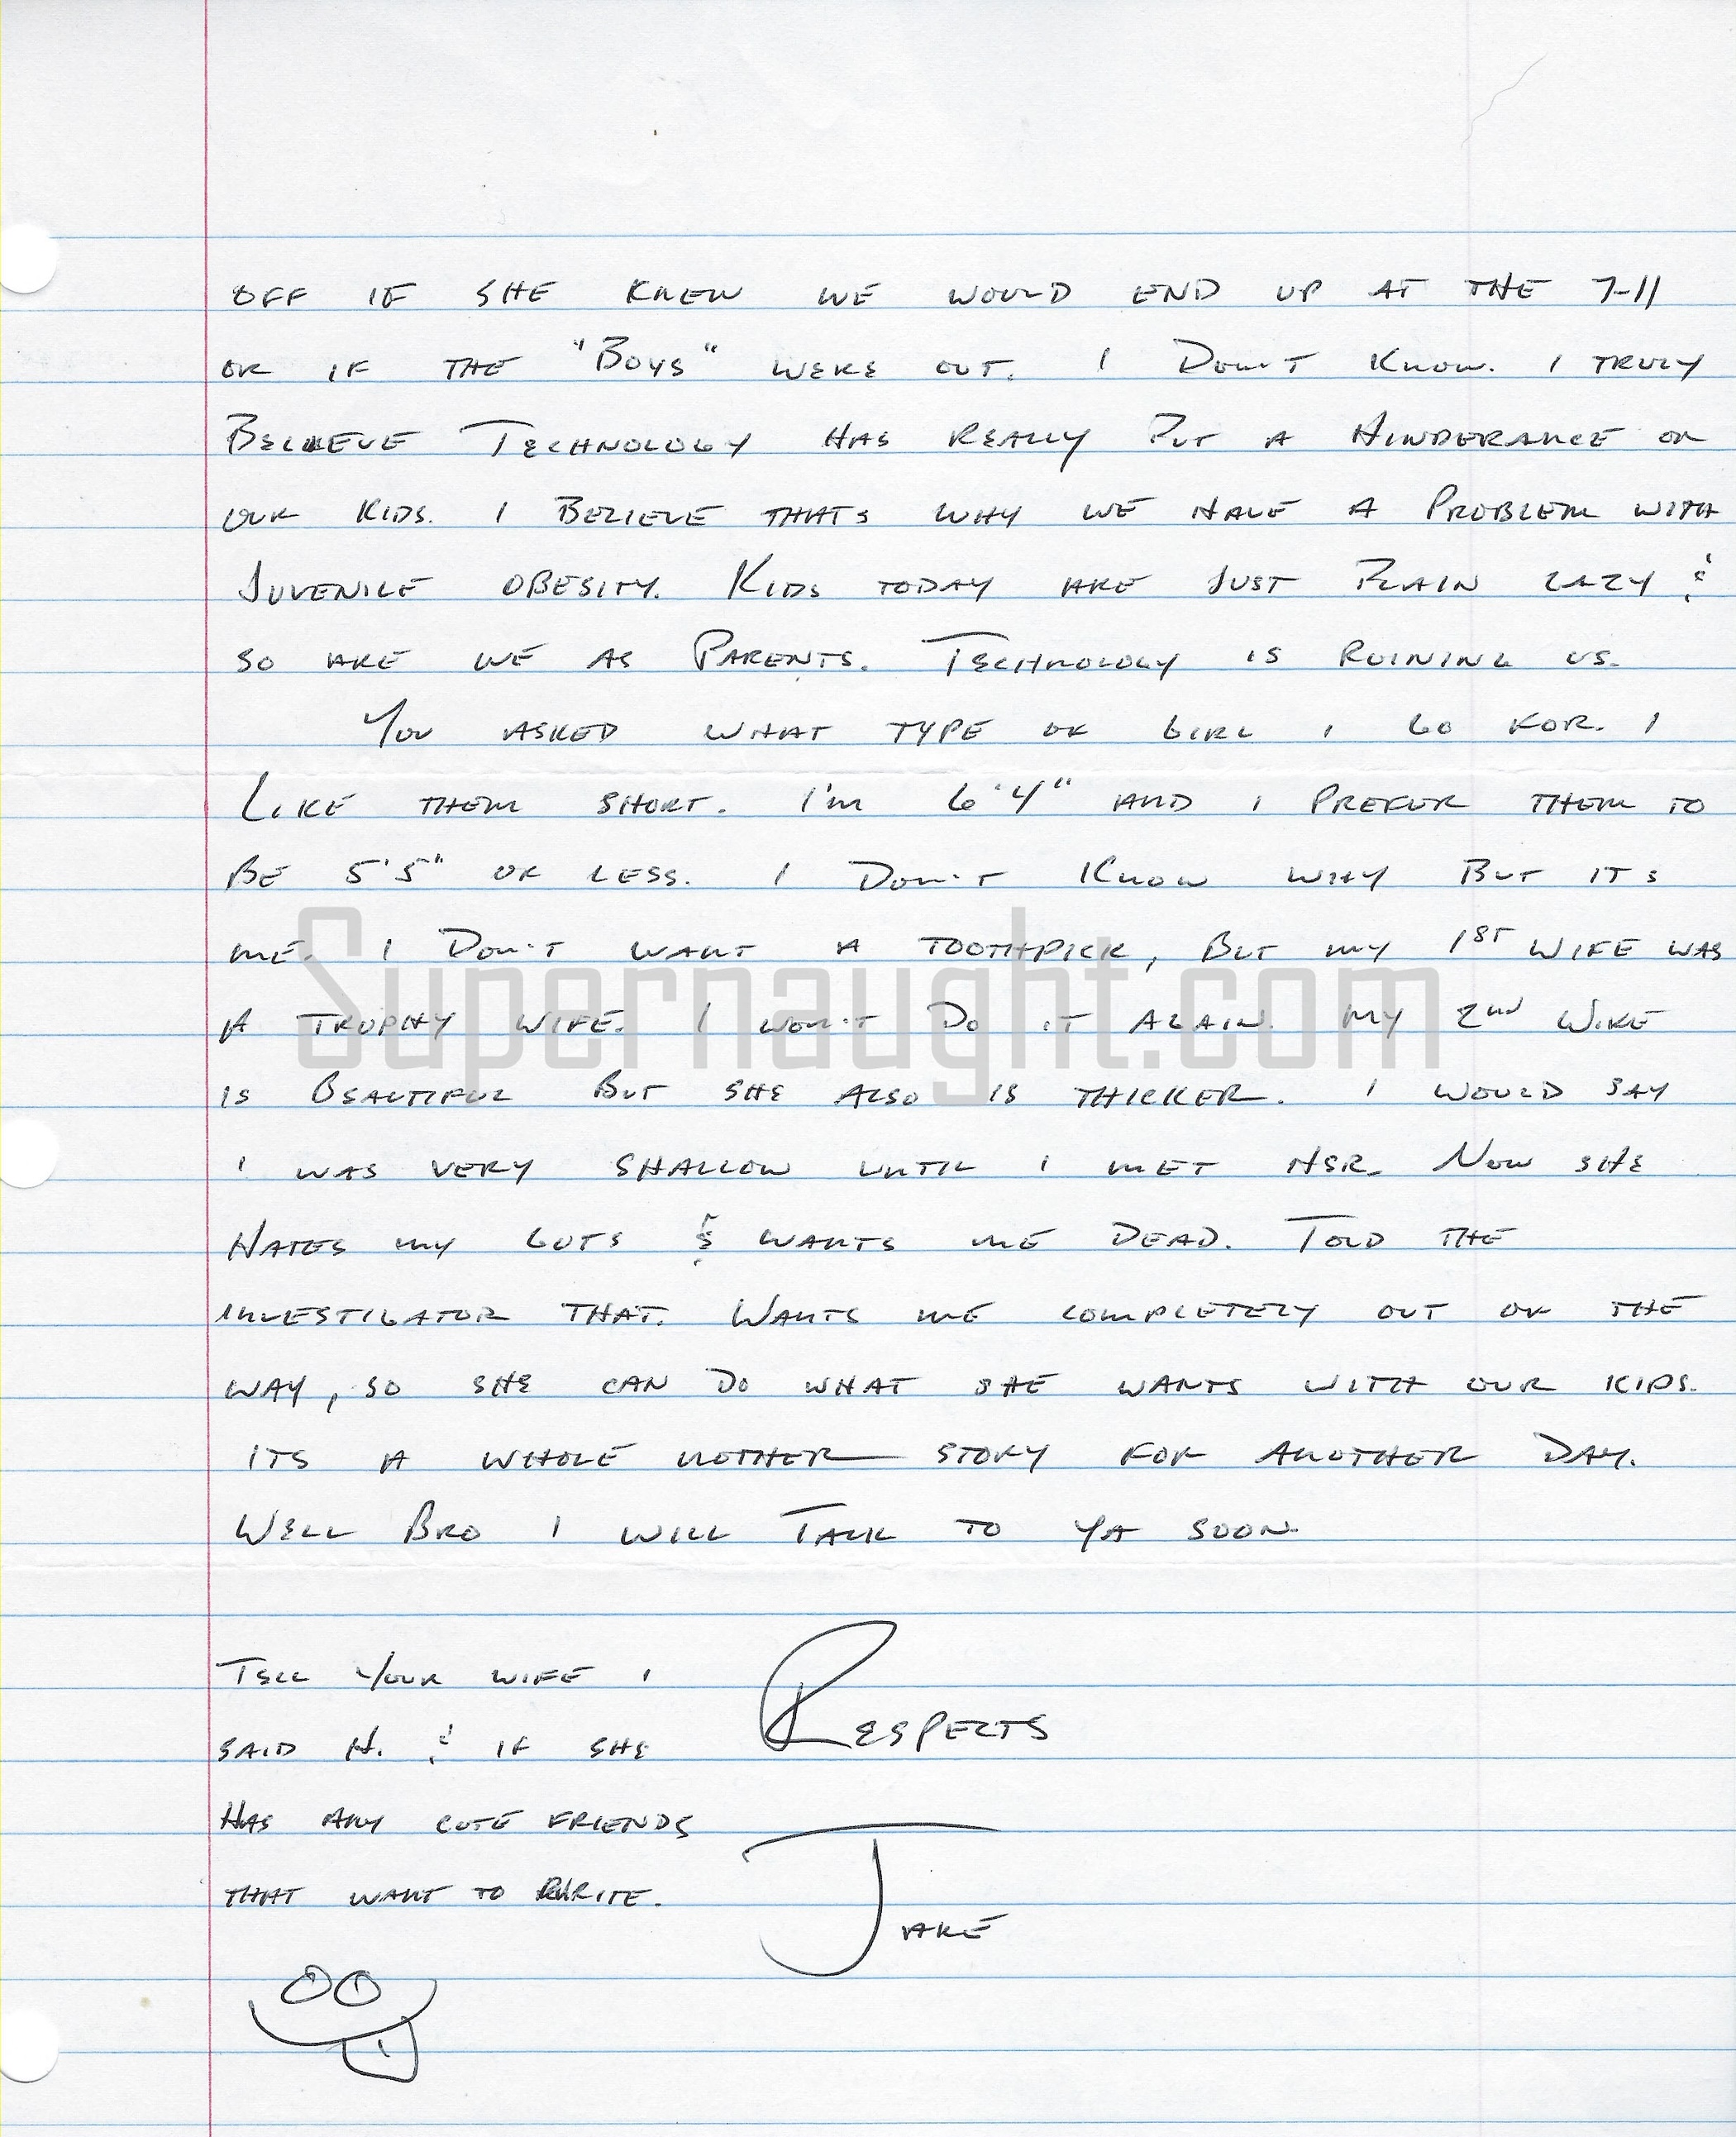 OFF IF SHE KNEW WE WOULD END UP AT THE 7-11
OR IF THE "BOYS" WERE OUT. I DON'T KNOW. I TRULY
BELIEVE TECHNOLOGY HAS REALLY PUT A HINDERANCE ON
OUR KIDS. I BELIEVE THATS WHY WE HAVE A PROBLEM WITH
JUVENILE OBESITY. KIDS TODAY ARE JUST PLAIN LAZY &
SO ARE WE AS PARENTS. TECHNOLOGY IS RUINING US.
YOU ASKED WHAT TYPE OF GIRL I GO FOR. I
LIKE THEM SHORT. I'M 6'4" AND I PREFER THEM TO
BE 5'5" OR LESS. I DON'T KNOW WHY BUT ITS
ME. I DON'T WANT A TOOTHPICK, BUT MY 1ST WIFE WAS
A TROPHY WIFE. I WON'T DO IT AGAIN. MY 2ND WIFE
IS BEAUTIFUL BUT SHE ALSO IS THICKER. I WOULD SAY
I WAS VERY SHALLOW UNTIL I MET HER. NOW SHE
HATES MY GUTS & WANTS ME DEAD. TOLD THE
INVESTIGATOR THAT. WANTS ME COMPLETELY OUT OF THE
WAY, SO SHE CAN DO WHAT SHE WANTS WITH OUR KIDS.
ITS A WHOLE NOTHER STORY FOR ANOTHER DAY.
WELL BRO I WILL TALK TO YA SOON.
TELL YOUR WIFE I
SAID HI & IF SHE
HAS ANY CUTE FRIENDS
THAT WANT TO WRITE.
RESPECTS
JAKE
Supernaught.com